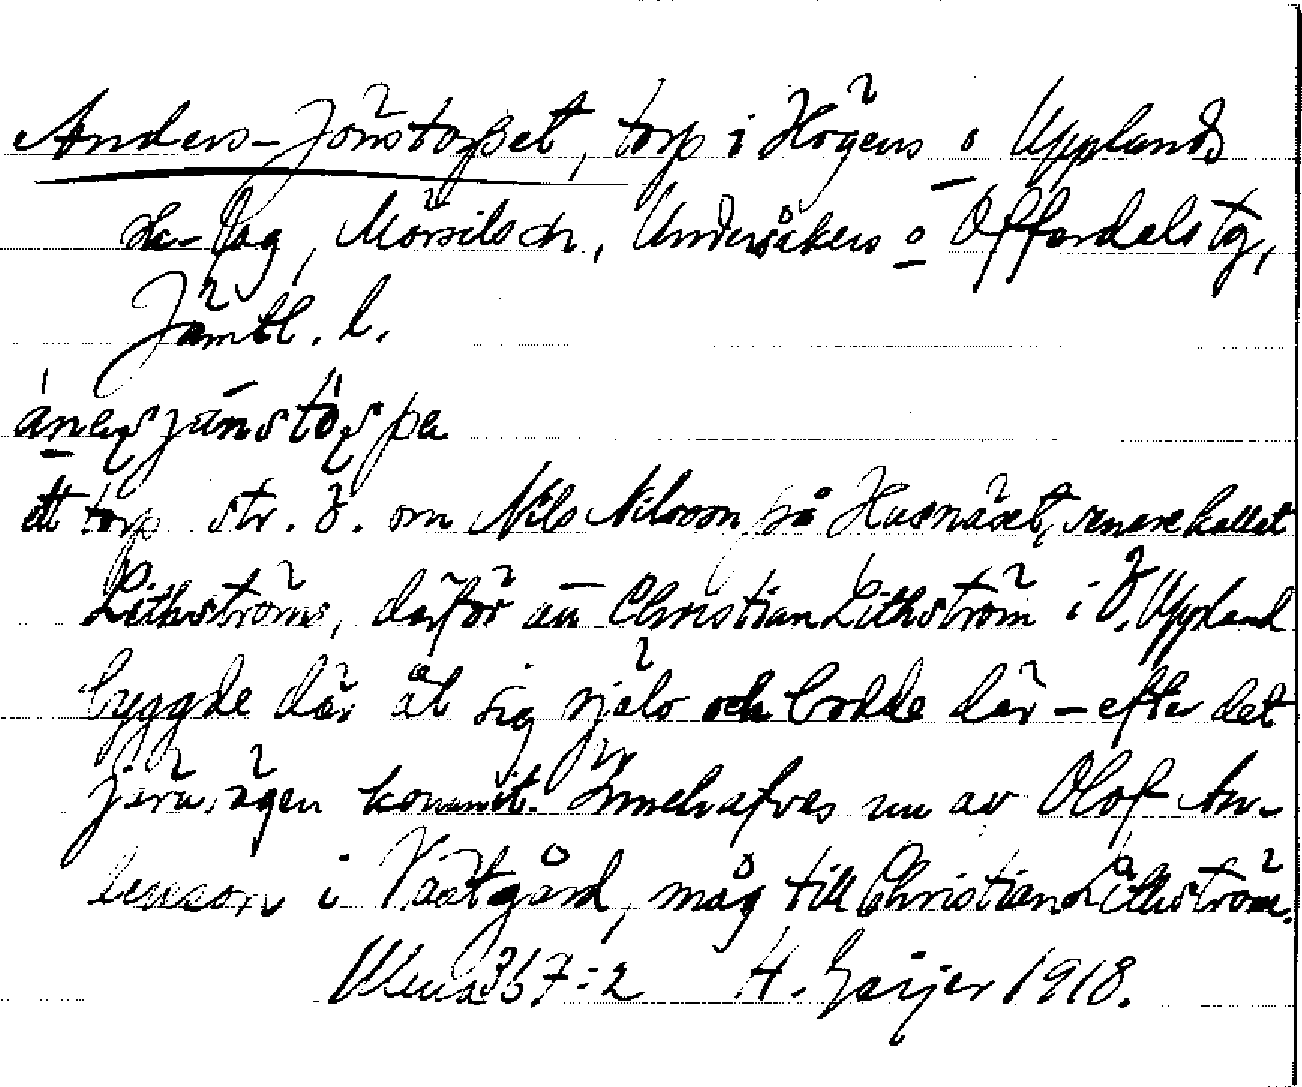 Anders-Jönstorpet, torp i Högens o Upplands
sk-lag, Mörsils sn, Undersåkers o Offerdals tg,
Jämtl. l.
ett torp str. ö. om Nils Nilsson på Husnäset, senare kallat
Lithströms, därför att Christian Lithström i Ö. Uppland
byggde där åt sig själv och bodde där – efter det
järnvägen kommit. Innehafves nu av Olof An-
dersson i Västgård, måg till Christian Lithström.
367:2 H. Geijer 1918.